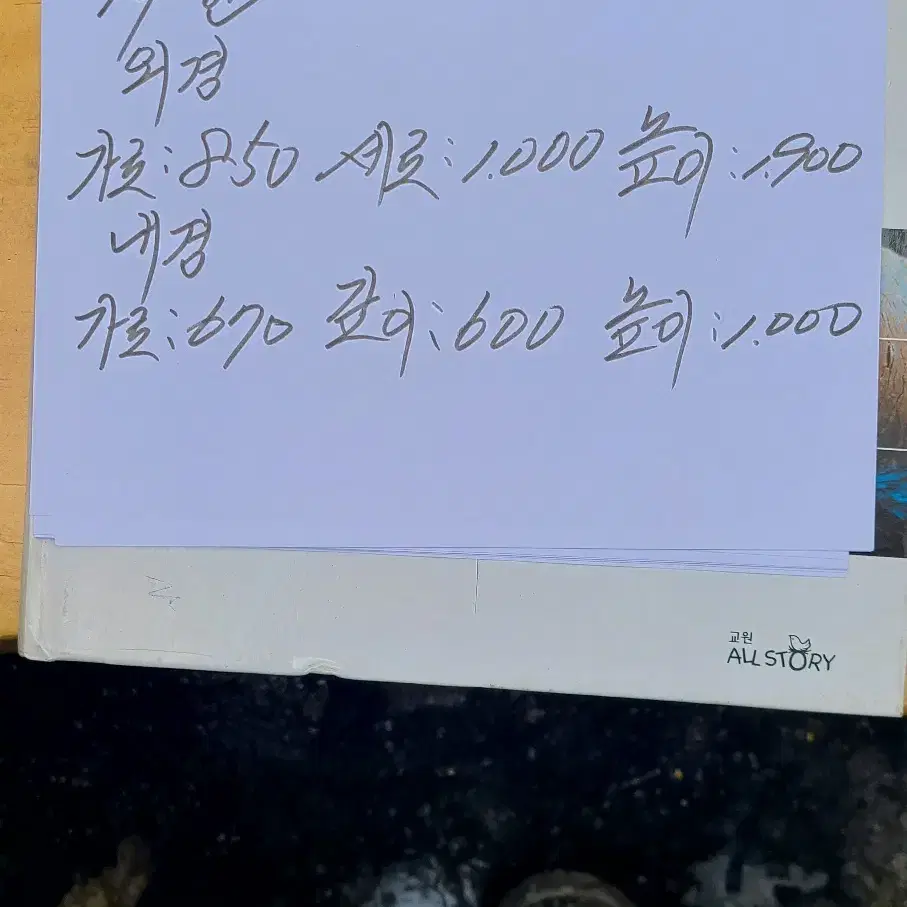 외경
가로:850 세로:1.000 높이:1.900
내경
가로:670 깊이:600 높이:1.000
교원
ALL STORY